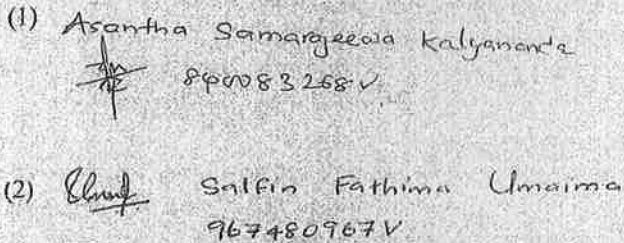 (1) Asantha Samarajeewa Kalyananda
(2) Salfin Fathima Umaima
967480967V